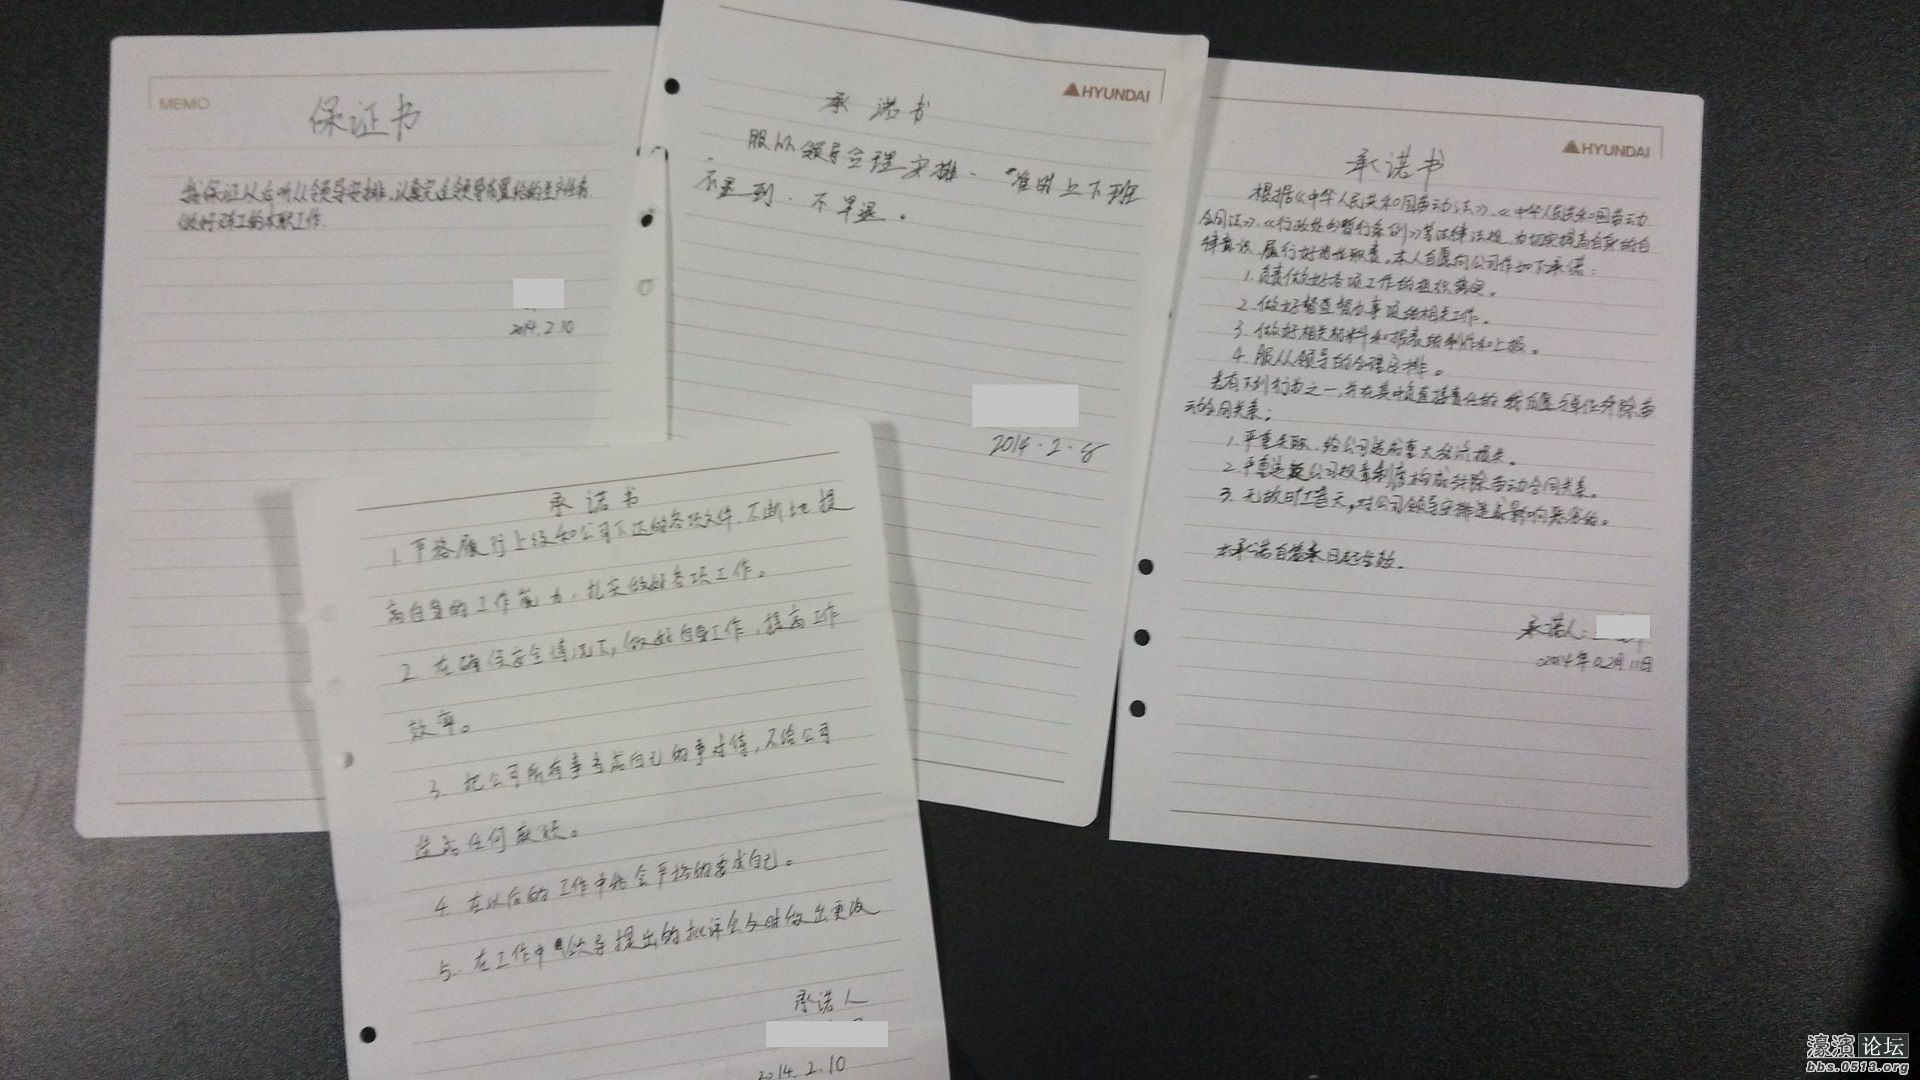 MEMO
保证书
我保证从今听从领导安排,认真完成领导布置给的生产任务
做好员工的本职工作.
2014.2.10
HYUNDAI
承诺书
服从领导合理安排.准时上下班
不迟到.不早退。
2014.2.8
HYUNDAI
承诺书
根据《中华人民共和国劳动法》、《中华人民共和国劳动
合同法》、《行政处分暂行条例》等法律法规,为切实提高自身的自
律意识、履行好岗位职责,本人自愿向公司作如下承诺:
1.负责做好各项工作的组织落实。
2.做好督查督办事项的相关工作。
3.做好相关材料和报表的制作和上报。
4.服从领导的合理安排。
若有下列行为之一,并在其中负直接责任的,我自愿与单位解除劳
动合同关系:
1.严重失职、给公司造成重大经济损失。
2.严重违反公司规章制度构成解除劳动合同关系。
3.无故旷工叁天,对公司领导安排造成影响恶劣的。
本承诺自签承日起生效.
承诺人:
2014年02月11日
承诺书
1.严格履行上级和公司下达的各项文件.不断地提
高自身的工作能力.扎实做好各项工作。
2 在确保安全情况下,做好自身工作.提高工作
效率。
3.把公司所有事当成自己的事对待,不给公司
造成任何麻烦。
4.在以后的工作中 会严格的要求自己。
5.在工作中领导提出的批评会及时做出更改
承诺人
2014.2.10
濠滨论坛
bbs.0513.org